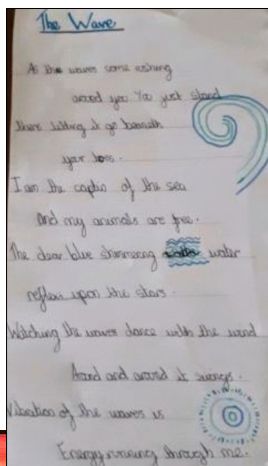 The Wave
As the waves come rshing
arood you You just stand
there letting it go beneath
your toes.
I am the captin of the sea
And my animals are free.
The clear blue shimmering water
reflecs upon the stars.
Watching the waves dance with the wind
Arond and arond it swings.
Vibation of the waves is
Energy running through me.